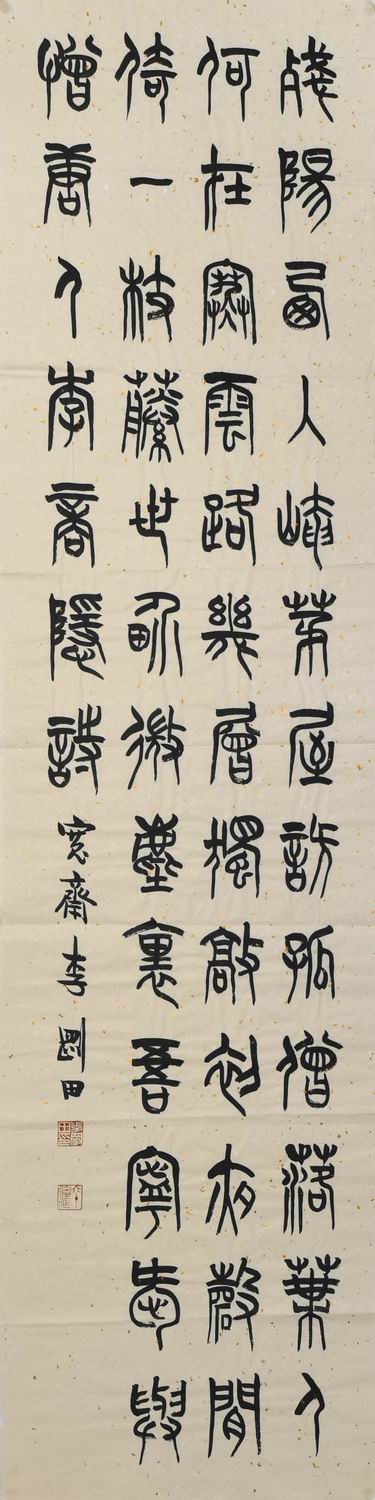 殘陽西入崦茅屋訪孤僧落葉人
何在寒雲路幾層獨敲初夜磬閒
倚一枝藤世界微塵裏吾寧愛與
憎唐人李商隱詩寬齋李剛田